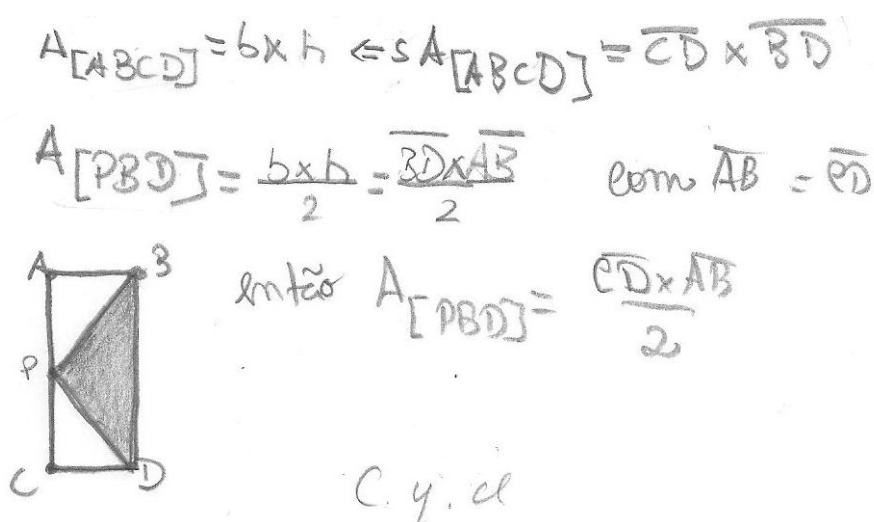 A[ABCD] = b x h <=> A[ABCD] = C̅D̅ x B̅D̅
A[PBD] = b x h / 2 = B̅D̅ x A̅B̅ / 2 com A̅B̅ = C̅D̅
A B então A[PBD] = C̅D̅ x A̅B̅ / 2
P
C D C. q. d